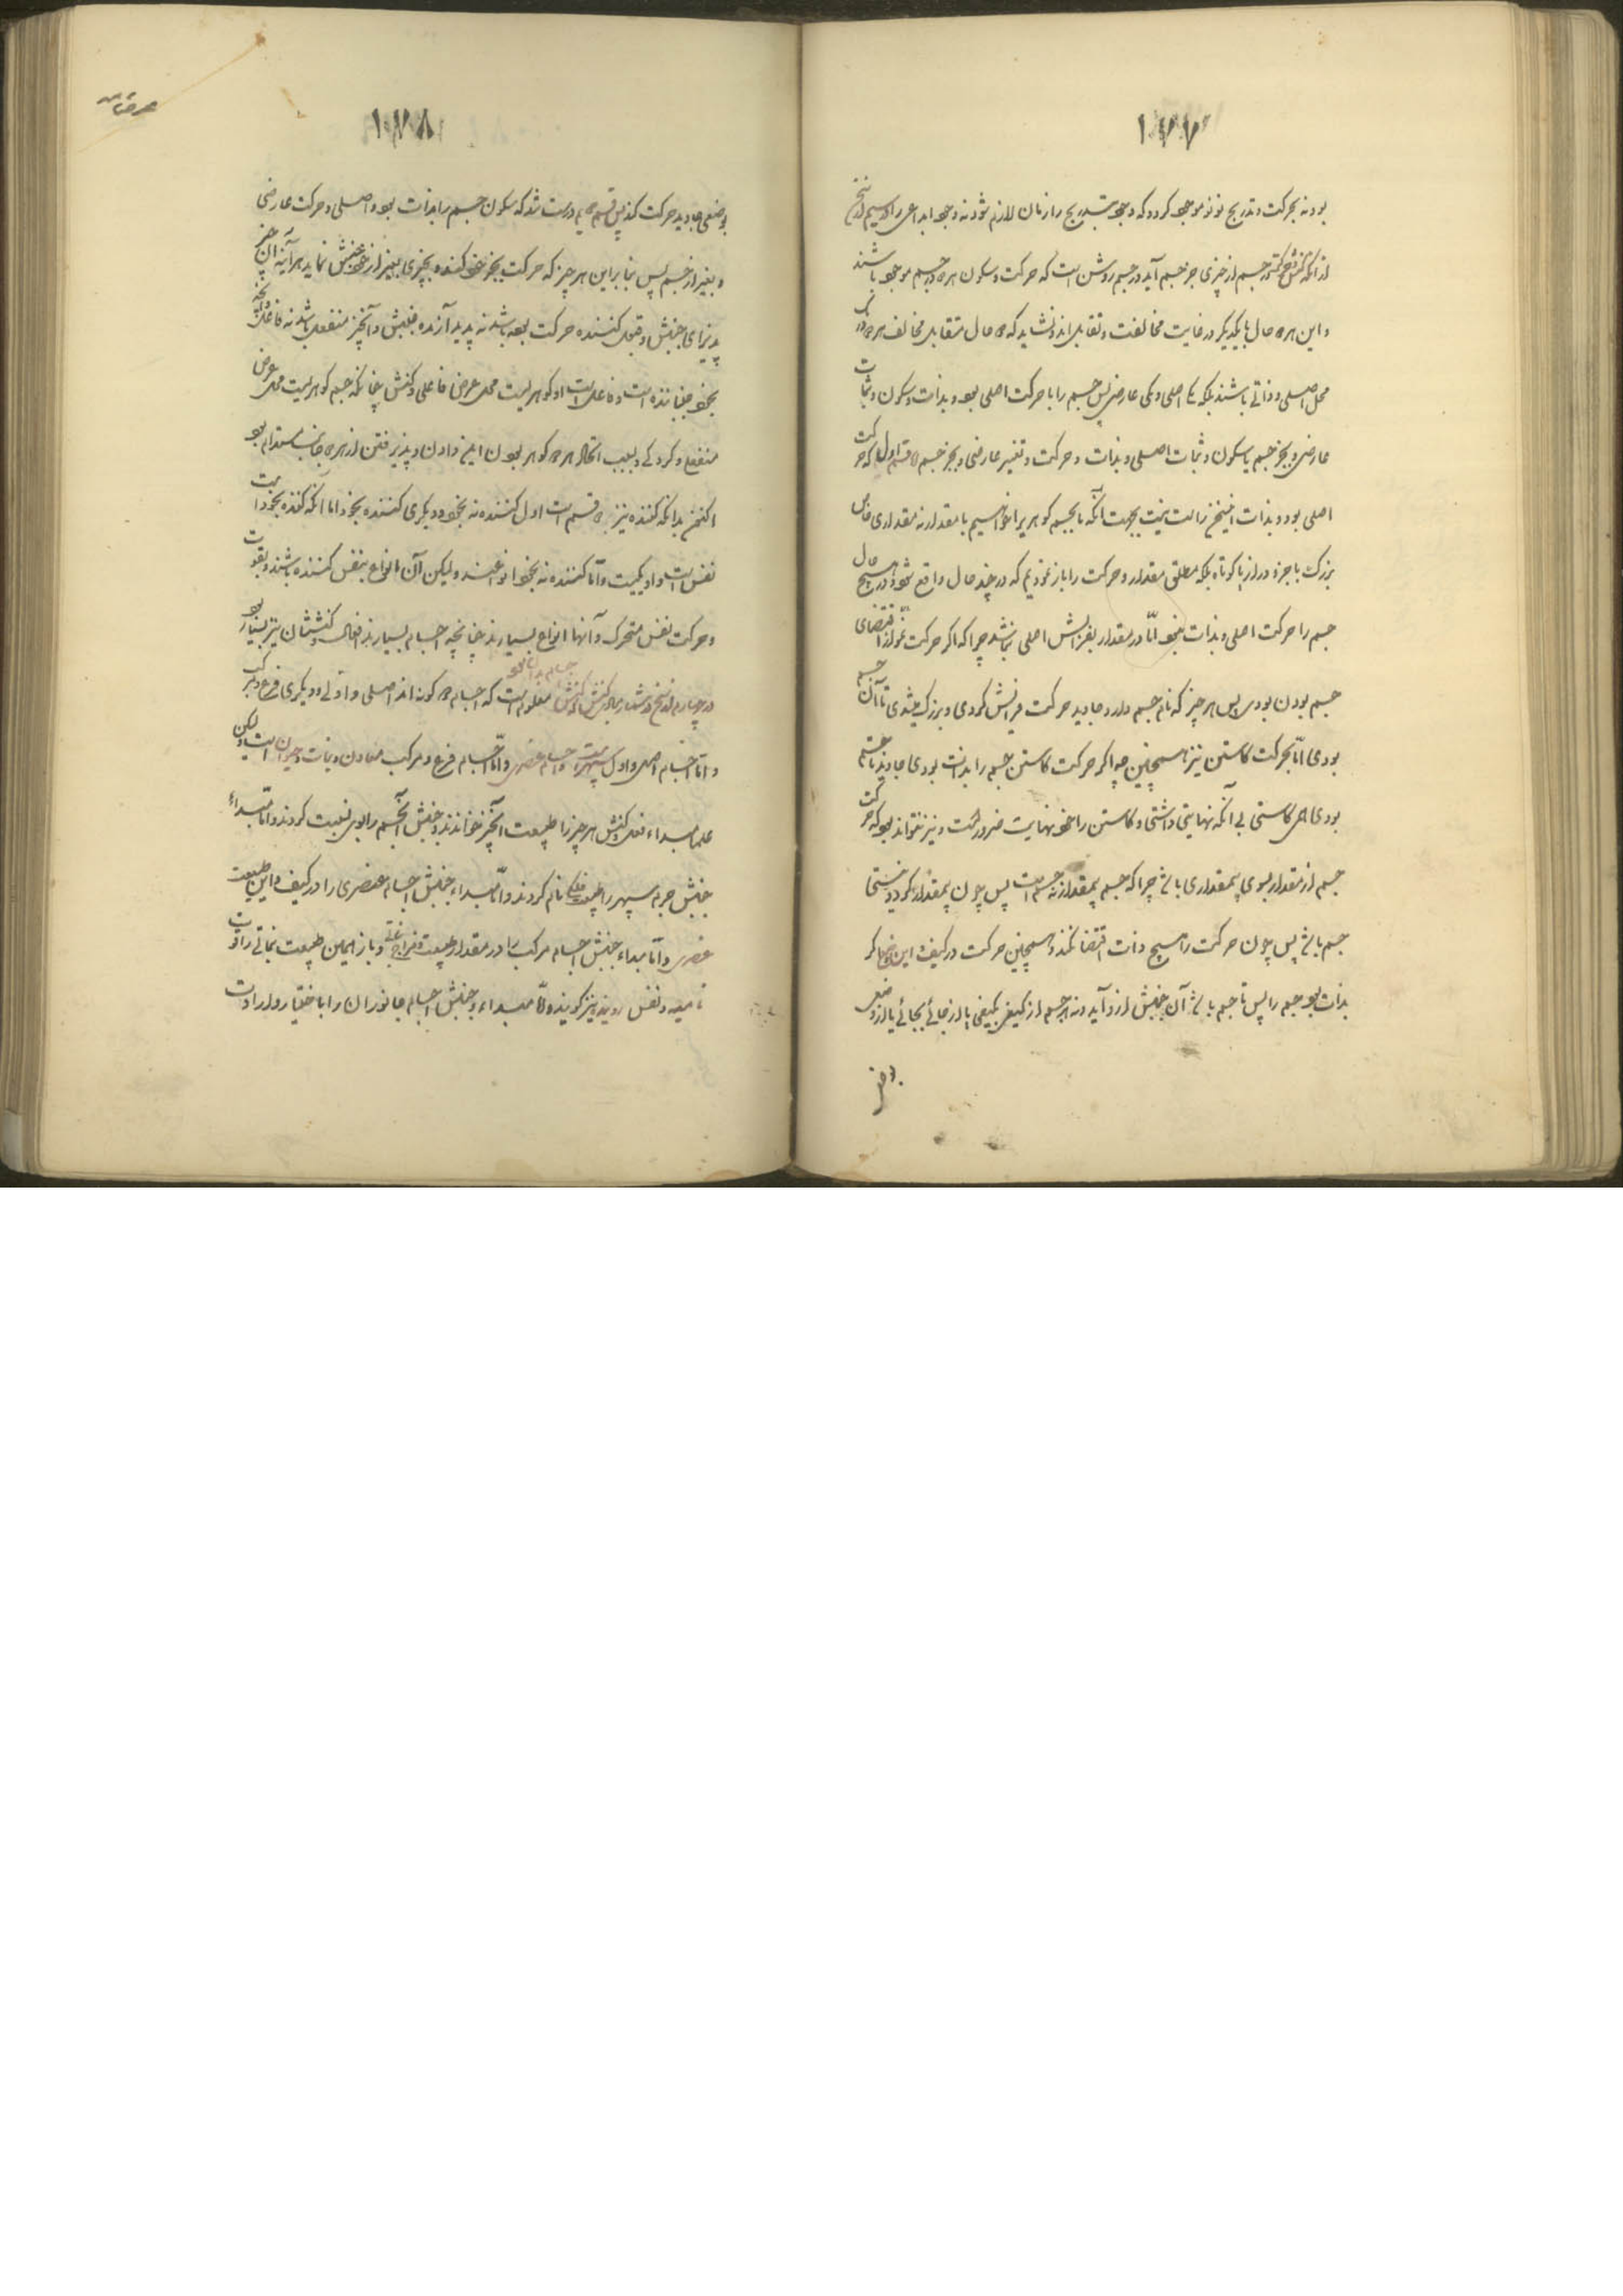 ۱۷۷
بود نه بحرکت و تدریج نو نو موجود گردد که وجود بتدریج را زمان لازم شود نه وجود ابداعی را
از آنکه جسم از چیزی جز جسم آید در جسم روشن است که حرکت و سکون هر دو در جسم موجود باشند
و این هر دو حال با یکدیگر در غایت مخالفت و تقابل اند و نشاید که دو حال متقابل مخالف هر دو در
محل اصلی و ذاتی باشند بلکه یکی اصلی و یکی عارضی پس جسم را یا حرکت اصلی بود و بذات و سکون و ثبات
عارضی و بجز جسم یا سکون و ثبات اصلی و بذات و حرکت و تغییر عارضی و بجز جسم و قسم اول که حرکت
اصلی بود و بذات این سخن راست نیست بجهت آنکه ما بجسم گوهریرا خواهیم با مقدار نه مقداری خاص
بزرگ یا خرد دراز یا کوتاه بلکه مطلق مقدار و حرکت را باز نمودیم که در چند حال واقع شود و در هیچ حال
جسم را حرکت اصلی و بذات نبود امّا در مقدار بفزایش اصلی نباشد چرا که اگر حرکت نمو از اقتضای
جسم بودن بودی پس هر چیز که نام جسم دارد جاوید حرکت فزایش کردی و بزرگ میشدی تا آن جسم
بودی امّا بحرکت کاستن نیز همچنین چه اگر حرکت کاستن جسم را بذات بودی جاوید تا جسم
بودی همی کاستی بی آنکه نهایتی داشتی و کاستن را خود نهایت ضرورتست و نیز نتواند بود که حرکت
جسم از مقدار بسوی بیمقداری باشد چرا که جسم بیمقدار نه جسم است پس چون بیمقدار گردد نیستی
جسم باشد پس چون حرکت را هیچ ذات اقتضا نکند و همچنین حرکت در کیف و این و وضع اگر
بذات بود جسم را پس تا جسم باشد آن جنبش ازو آید و نه هر جسم از کیفی بکیفی یا از جائی بجائی یا از وضعی
بوضعی
۱۷۸
بوضعی جاوید حرکت کند پس قسم دویم درست شد که سکون جسم را بذات بود و اصلی و حرکت عارضی
و بغیر از جسم پس بنا براین هر چیز که حرکت بجز خود کند و بچیزی بغیر از خود جنبش نماید هر آینه آن چیز
پذیرای جنبش و قبول کننده حرکت بوده باشد نه پدید آرنده جنبش و آنچیز منفعل باشد نه فاعل و آنچه
بخود جنباننده است و فاعل است او گوهریست محل عرض فاعلی و کنش چنانکه جسم گوهریست محل عرض
منفعل و کردگی و بسبب اتحاد هر دو گوهر بودن این دادن و پذیرفتن از هر دو جانب مستدام بود
اکنون بدانکه کننده نیز دو قسم است اول کننده نه بخود و دیگری کننده بخود اما آنکه کننده بخود است
نفس است و او یکیست و امّا کننده نه بخود انواعند و لیکن آن انواع بنفس کننده باشند و بقوت
و حرکت نفس متحرک و آنها انواع بسیارند چنانچه اجسام بسیارند افعال و کنششان نیز بسیار بود
در چهارم از سخن در شمار مبادی کنش و جنبش اجسام بدان بود معلوم است که اجسام دو گونه اند اصلی و اوّلی و دیگری فرع و مرکب
و امّا اجسام اصلی و اول سپهر است و اجسام عنصری و امّا اجسام فرع و مرکب معادن و نبات و حیوان است و لیکن
علما مبداء فعل و کنش هر چیز را طبیعت آنچیز خواندند و جنبش آنجسم را بوی نسبت کردند و امّا مبداء
جنبش جرم سپهر را طبیعت فلکی نام کردند و امّا مبداء جنبش اجسام عنصری را در کیف و این طبیعت
عنصری و امّا مبداء جنبش اجسام مرکب را در مقدار طبیعت مزاجی و باز همین طبیعت نباتی را قوت
نامیه و نفس روینده نیز گویند و امّا مبداء و جنبش اجسام جانوران را با ختیار و ارادت